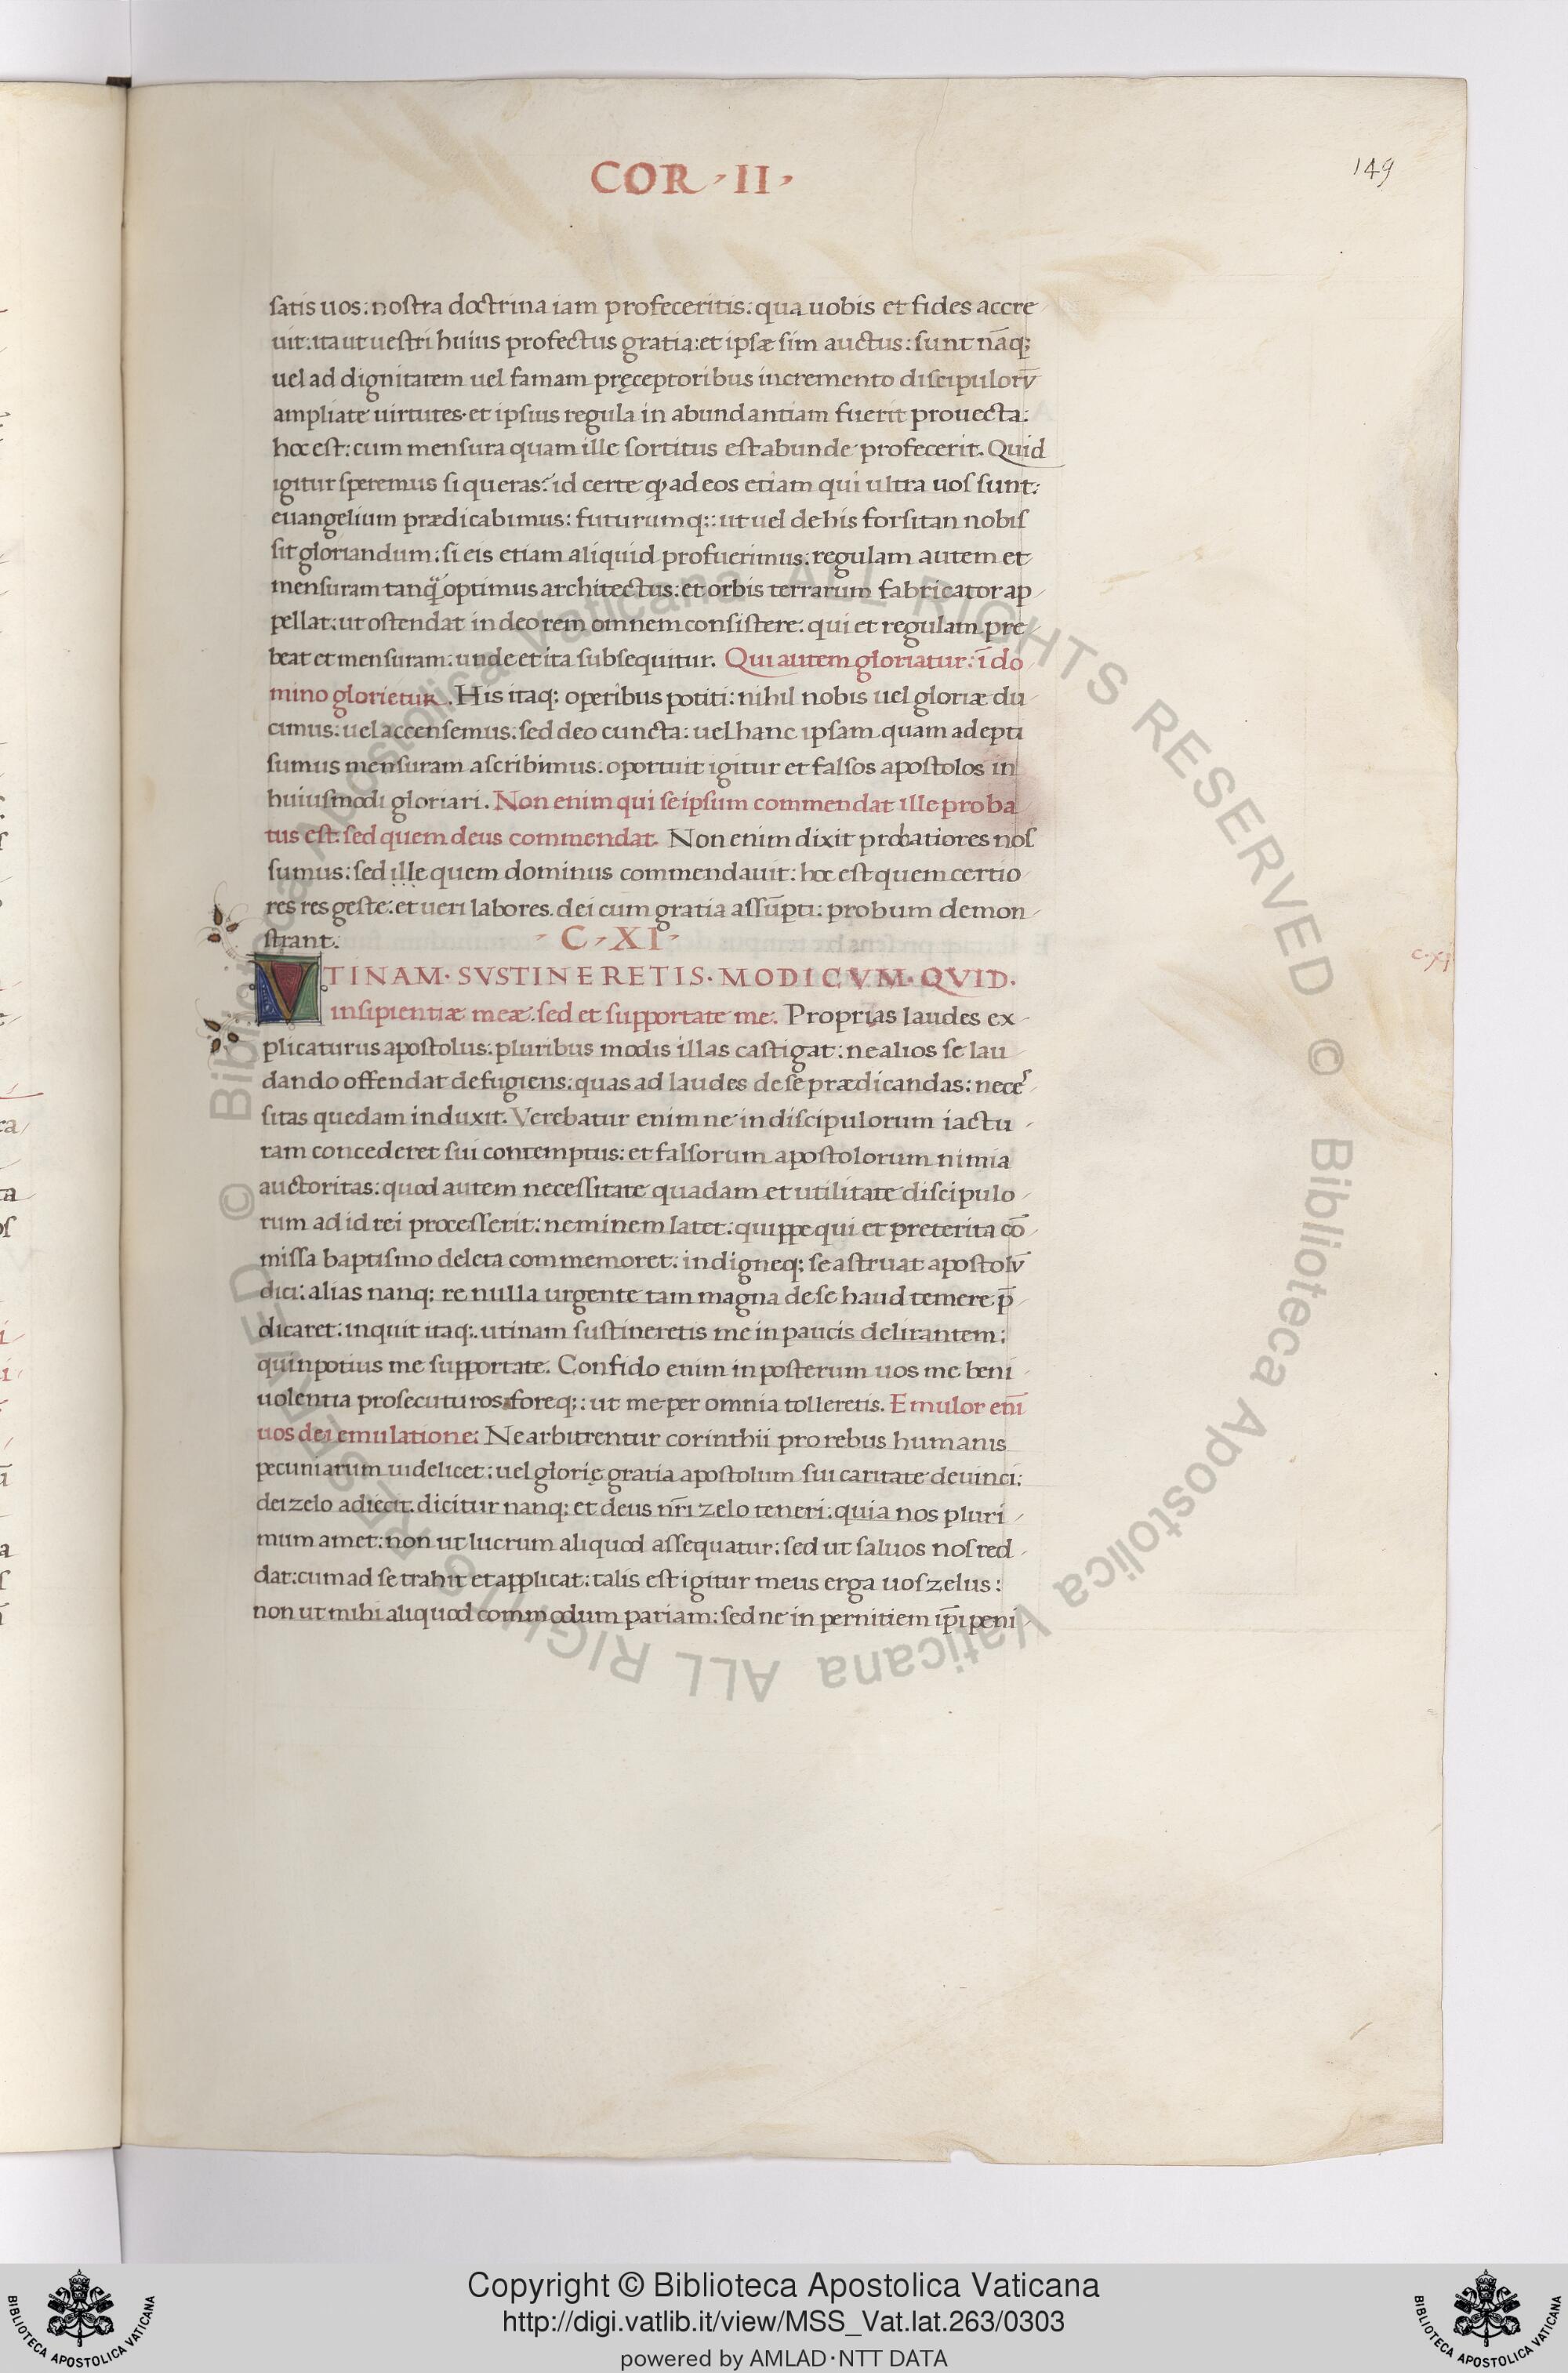 COR · II ·
149
satis uos: nostra doctrina iam profeceritis: qua uobis et fides accre
uit: ita ut uestri huius profectus gratia: et ipsæ sim auctus: sunt nāq;
uel ad dignitatem uel famam pręceptoribus incremento discipuloꝝ
ampliate uirtutes· et ipsius regula in abundantiam fuerit prouecta:
hoc est: cum mensura quam ille sortitus est abunde profecerit. Quid
igitur speremus si queras: id certe ꝙ ad eos etiam qui ultra uos sunt:
euangelium prædicabimus: futurumq;: ut uel de his forsitan nobis
sit gloriandum: si eis etiam aliquid profuerimus. regulam autem et
mensuram tanq̃ optimus architectus: et orbis terrarum fabricator ap
pellat: ut ostendat in deo rem omnem consistere: qui et regulam pre
beat et mensuram: unde et ita subsequitur. Qui autem gloriatur: ī do
mino glorietur. His itaq; operibus potiti: nihil nobis uel gloriæ du
cimus: uel accensemus: sed deo cuncta: uel hanc ipsam quam adepti
sumus mensuram ascribimus. oportuit igitur et falsos apostolos in
huiusmodi gloriari. Non enim qui seipsum commendat ille proba
tus est: sed quem deus commendat. Non enim dixit probatiores nos
sumus: sed ille quem dominus commendauit: hoc est quem certio
res res geste: et ueri labores dei cum gratia assūpti: probum demon
strant.
· C · XI ·
c. xj
VTINAM · SVSTINERETIS · MODICVM · QVID ·
insipientiæ meæ: sed et supportate me. Proprias laudes ex
plicaturus apostolus: pluribus modis illas castigat: ne alios se lau
dando offendat defugiens: quas ad laudes de se prædicandas: neces
sitas quedam induxit. Verebatur enim ne in discipulorum iactu
ram concederet sui contemptus: et falsorum apostolorum nimia
auctoritas: quod autem necessitate quadam et utilitate discipulo
rum ad id rei processerit: neminem latet: quippe qui et preterita cō
missa baptismo deleta commemoret: indigneq; se astruat apostolū
dici: alias nanq; re nulla urgente tam magna de se haud temere p̄
dicaret: inquit itaq;: utinam sustineretis me in paucis delirantem:
quin potius me supportate. Confido enim in posterum uos me beni
uolentia prosecuturos foreq;: ut me per omnia tolleretis. Emulor enī
uos dei emulatione: Ne arbitrentur corinthii pro rebus humanis
pecuniarum uidelicet: uel glorię gratia apostolum sui caritate deuinci:
dei zelo adiecit. dicitur nanq; et deus nr̄i zelo teneri: quia nos pluri
mum amet: non ut lucrum aliquod assequatur: sed ut saluos nos red
dat: cum ad se trahit et applicat: talis est igitur meus erga uos zelus:
non ut mihi aliquod commodum pariam: sed ne in pernitiem ip̄i peni
© Biblioteca Apostolica Vaticana ALL RIGHTS RESERVED © Biblioteca Apostolica Vaticana ALL RIGHTS RESERVED
Copyright © Biblioteca Apostolica Vaticana
http://digi.vatlib.it/view/MSS_Vat.lat.263/0303
powered by AMLAD·NTT DATA
BIBLIOTECA APOSTOLICA VATICANA
BIBLIOTECA APOSTOLICA VATICANA